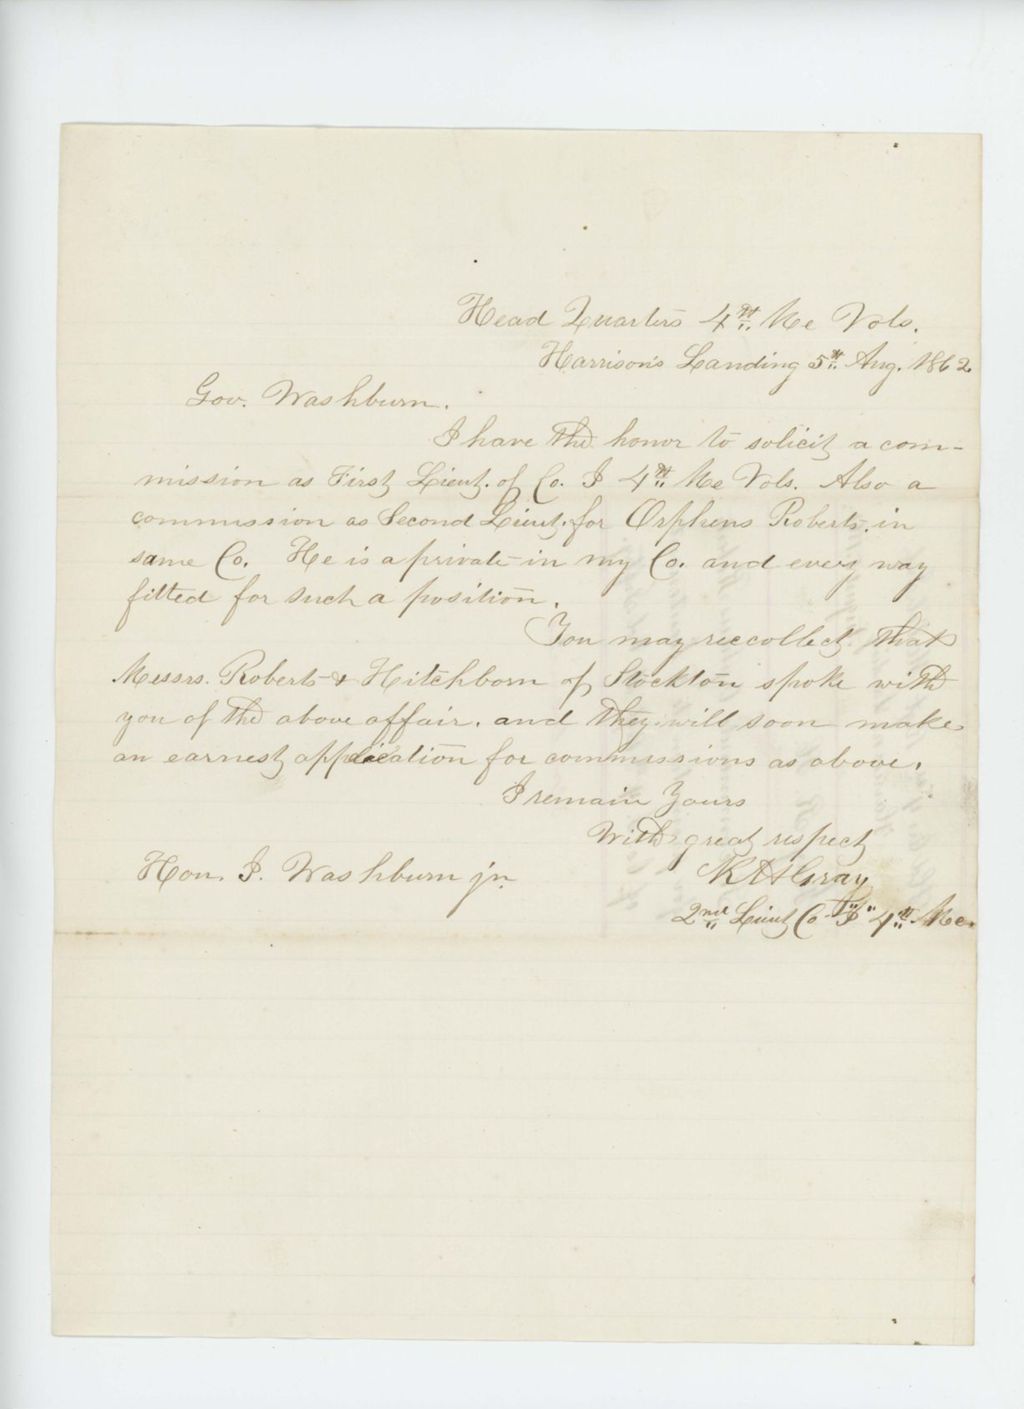 Head Quarters 4th Me Vols.
Harrison's Landing 5th Aug. 1862
Gov. Washburn.
I have the honor to solicit a com-
mission as First Lieut. of Co. I 4th Me Vols. Also a
commission as Second Lieut. for Orpheus Roberts. in
same Co. He is a private in my Co. and every way
fitted for such a position.
You may reccollect that
Messrs. Roberts & Hitchborn of Stockton spoke with
you of the above affair. and they will soon make
an earnest application for commissions as above.
I remain Yours
With great respect
Hon. I. Washburn jr. Gray
2nd Lieut Co "I" 4th Me.